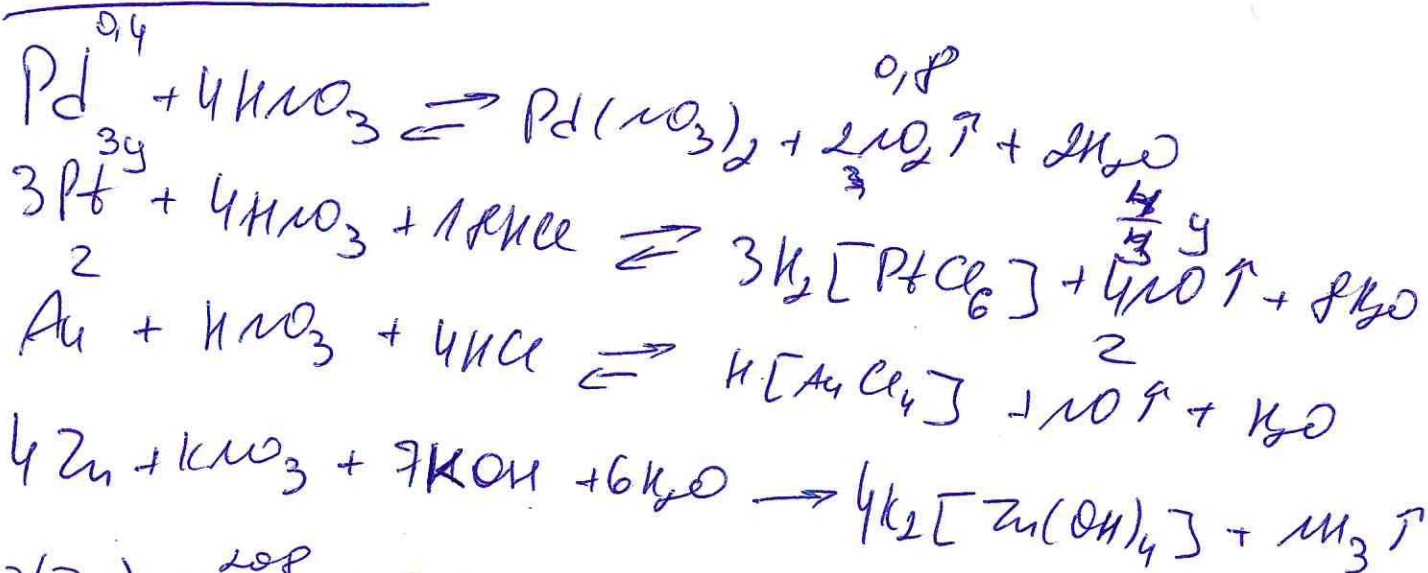 0,4 0,8
Pd + 4HNO3 ⇄ Pd(NO3)2 + 2NO2↑ + 2H2O
3y 4/3 y
3Pt + 4HNO3 + 18HCl ⇄ 3H2[PtCl6] + 4NO↑ + 8H2O
z z
Au + HNO3 + 4HCl ⇄ H[AuCl4] + NO↑ + H2O
4Zn + KNO3 + 7KOH + 6H2O → 4K2[Zn(OH)4] + NH3↑